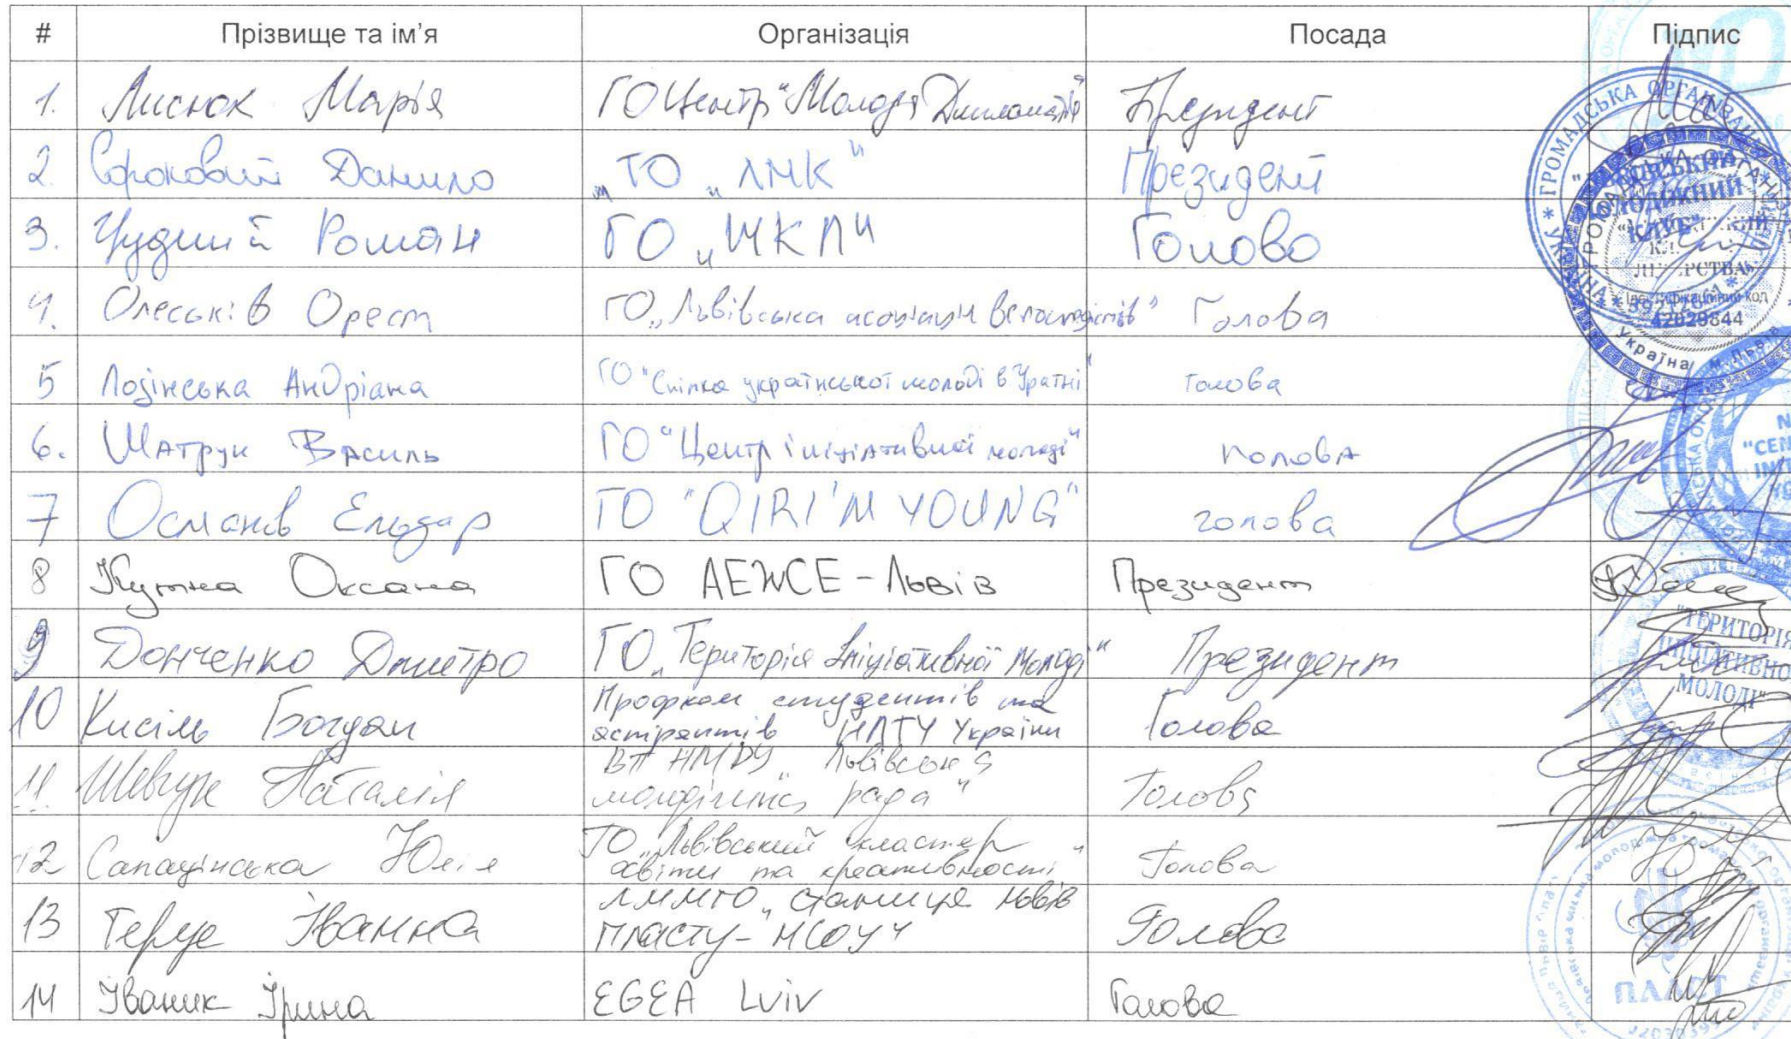 # Прізвище та ім'я Організація Посада Підпис
1. Лисюк Марія ГО Центр "Молода Дипломатія" Президент
2. Сороковий Данило "ГО "ЛМК" Президент
3. Чудний Роман ГО "МКЛ" Голова
4. Олеськів Орест ГО "Львівська асоціація велосипедистів" Голова
5 Лозінська Андріана ГО "Спілка української молоді в Україні" голова
6. Шатрук Василь ГО "Центр ініціативної молоді" голова
7 Османів Ельдар ГО "QIRI'M YOUNG" голова
8 Кутна Оксана ГО AEЖCE - Львів Президент
9 Донченко Дмитро ГО "Територія Ініціативної Молоді" Президент
10 Кисіль Богдан Профком студентів та
аспірантів НЛТУ України Голова
11 Шевчук Наталія ВП НМРУ Львівська
молодіжна рада" Голова
12 Сапацінська Юлія ГО "Львівський кластер
освіти та креативності" Голова
13 Іванна ЛММГО "Станиця Львів
Пласту - НСОУ" Голова
14 Іваник Ірина EGEA Lviv Голова
ГРОМАДСЬКА ОРГАНІЗАЦІЯ
МОЛОДІЖНИЙ
КЛУБ"
ЛІДЕРСТВА»
Ідентифікаційний код
42029844
Україна м. Львів
"ТЕРИТОРІЯ
ІНІЦІАТИВНОЇ
МОЛОДІ"
ПЛАСТ